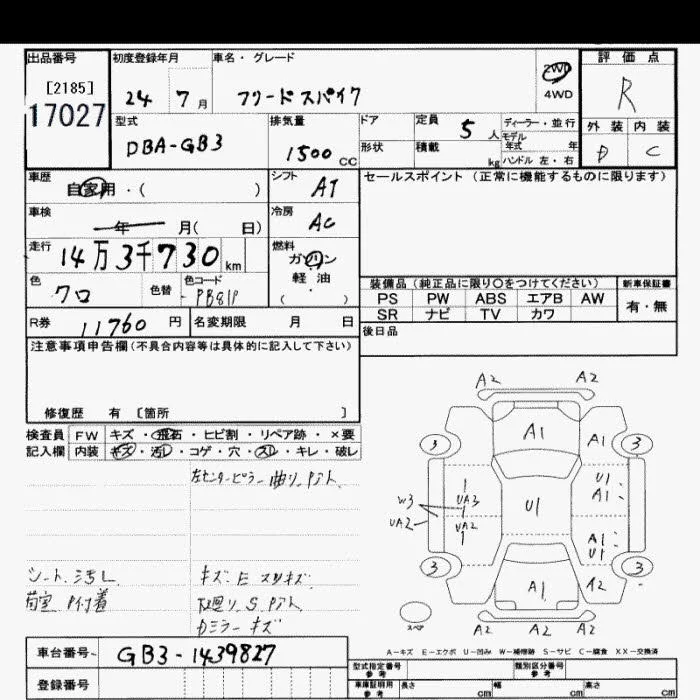 出品番号
[2185]
17027
初度登録年月
24 7 月
車名・グレード
フリードスパイク
2WD
4WD
評価点
R
外装 内装
D C
型式
DBA-GB3
排気量
1500 CC
ドア
形状
定員
5 人
積載
kg
ディーラー・並行
モデル
年式 年
ハンドル 左・右
車歴
自家用・( )
シフト
AT
セールスポイント(正常に機能するものに限ります)
車検
年 月( 日)
冷房
AC
走行
14万3千730 km
燃料
ガソリン
軽油
( )
色
クロ
色替
色コード
PB81P
装備品(純正品に限り○をつけてください)
新車保証書
PS PW ABS エアB AW
有・無
SR ナビ TV カワ
R券
11760 円
名変期限 月 日
後日品
注意事項申告欄(不具合内容等は具体的に記入して下さい)
修復歴 有 [箇所 ]
検査員
記入欄
FW キズ・飛石・ヒビ割・リペア跡・×要
内装 キズ・汚レ・コゲ・穴・スレ・キレ・破レ
左センターピラー曲リ、アト
シート、汚レ
荷室 P付着
キズ、E スリキズ
下廻リ S アト
カミラーキズ
A2 A2
A1
A1
3 3
U1
A1
W3
UA3
UA2
UA2
U1
A1
U1
3 3
A1
A2
スペア
A2 A2 A2
A-キズ E-エクボ U-凹み W-補修跡 S-サビ C-腐食 XX-交換済
車台番号
GB3-1439827
登録番号
型式指定番号
参考
類別区分番号
参考
車庫証明用
参考
長さ cm 幅 cm 高さ cm